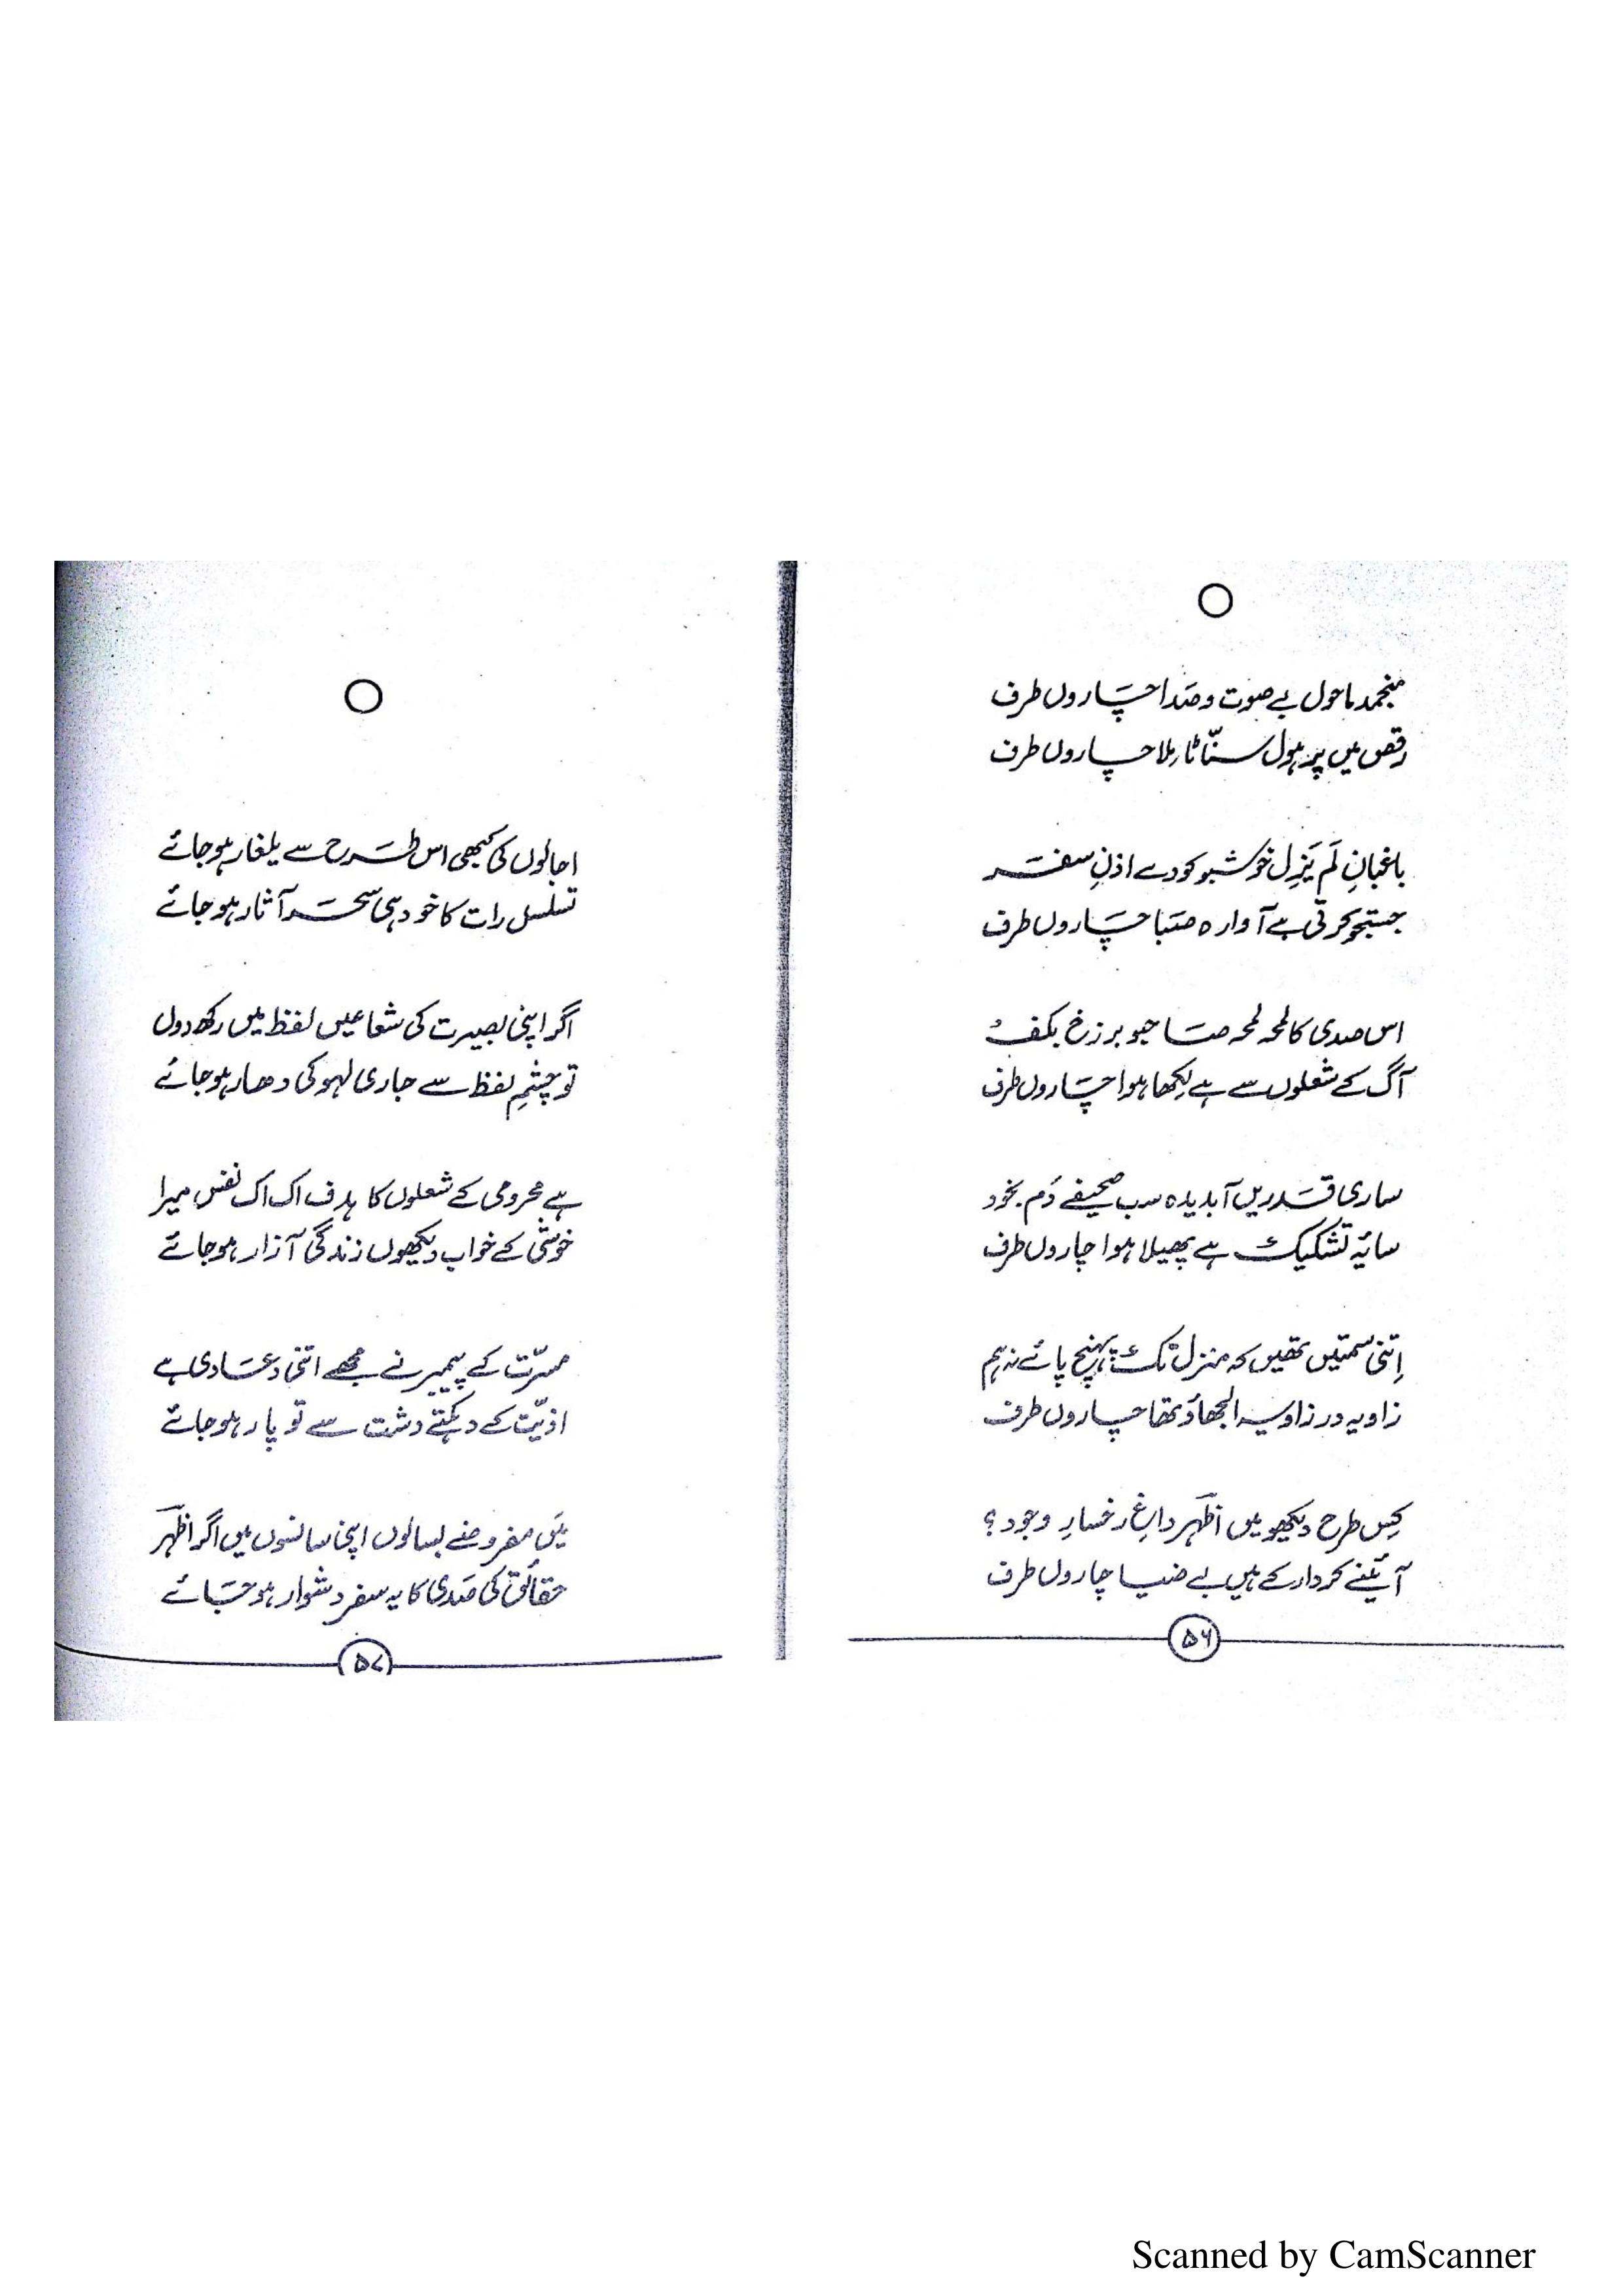 منجمد ماحول بے صوت و صدا چاروں طرف
رقص میں پر ہول سنّاٹا رہا چاروں طرف
باغبانِ لَم یَزِل خوشبو کو دے اذنِ سفر
جستجو کرتی ہے آوارہ صَبا چاروں طرف
اس صدی کا لمحہ لمحہ صاحبو برزخ بکف
آگ کے شعلوں سے ہے لِکھا ہوا چاروں طرف
ساری قدریں آبدیدہ سب صحیفے دَم بخود
سایۂ تشکیک ہے پھیلا ہوا چاروں طرف
اِتنی سمتیں تھیں کہ منزل تک پہنچ پائے نہ ہم
زاویہ در زاویہ الجھاؤ تھا چاروں طرف
کِس طرح دیکھو میں اظہر داغِ رخسارِ وجود؟
آئینے کردار کے ہیں بے ضیا چاروں طرف
۵۶
اجالوں کی کبھی اس طرح سے یلغار ہو جائے
تسلسل رات کا خود ہی سحر آثار ہو جائے
اگر اپنی بصیرت کی شعاعیں لفظ میں رکھ دوں
تو چشمِ لفظ سے جاری لہو کی دھار ہو جائے
ہے محرومی کے شعلوں کا ہدف اک اک نفس میرا
خوشی کے خواب دیکھوں زندگی آزار ہو جائے
مسرّت کے پیمبر نے مجھے اتنی دعا دی ہے
اذیّت کے دہکتے دشت سے تو پار ہو جائے
میَں مفروضے بسا لوں اپنی سانسوں میں اگر اظہر
حقائق کی صَدی کا یہ سفر دشوار ہو جائے
۵۷
Scanned by CamScanner